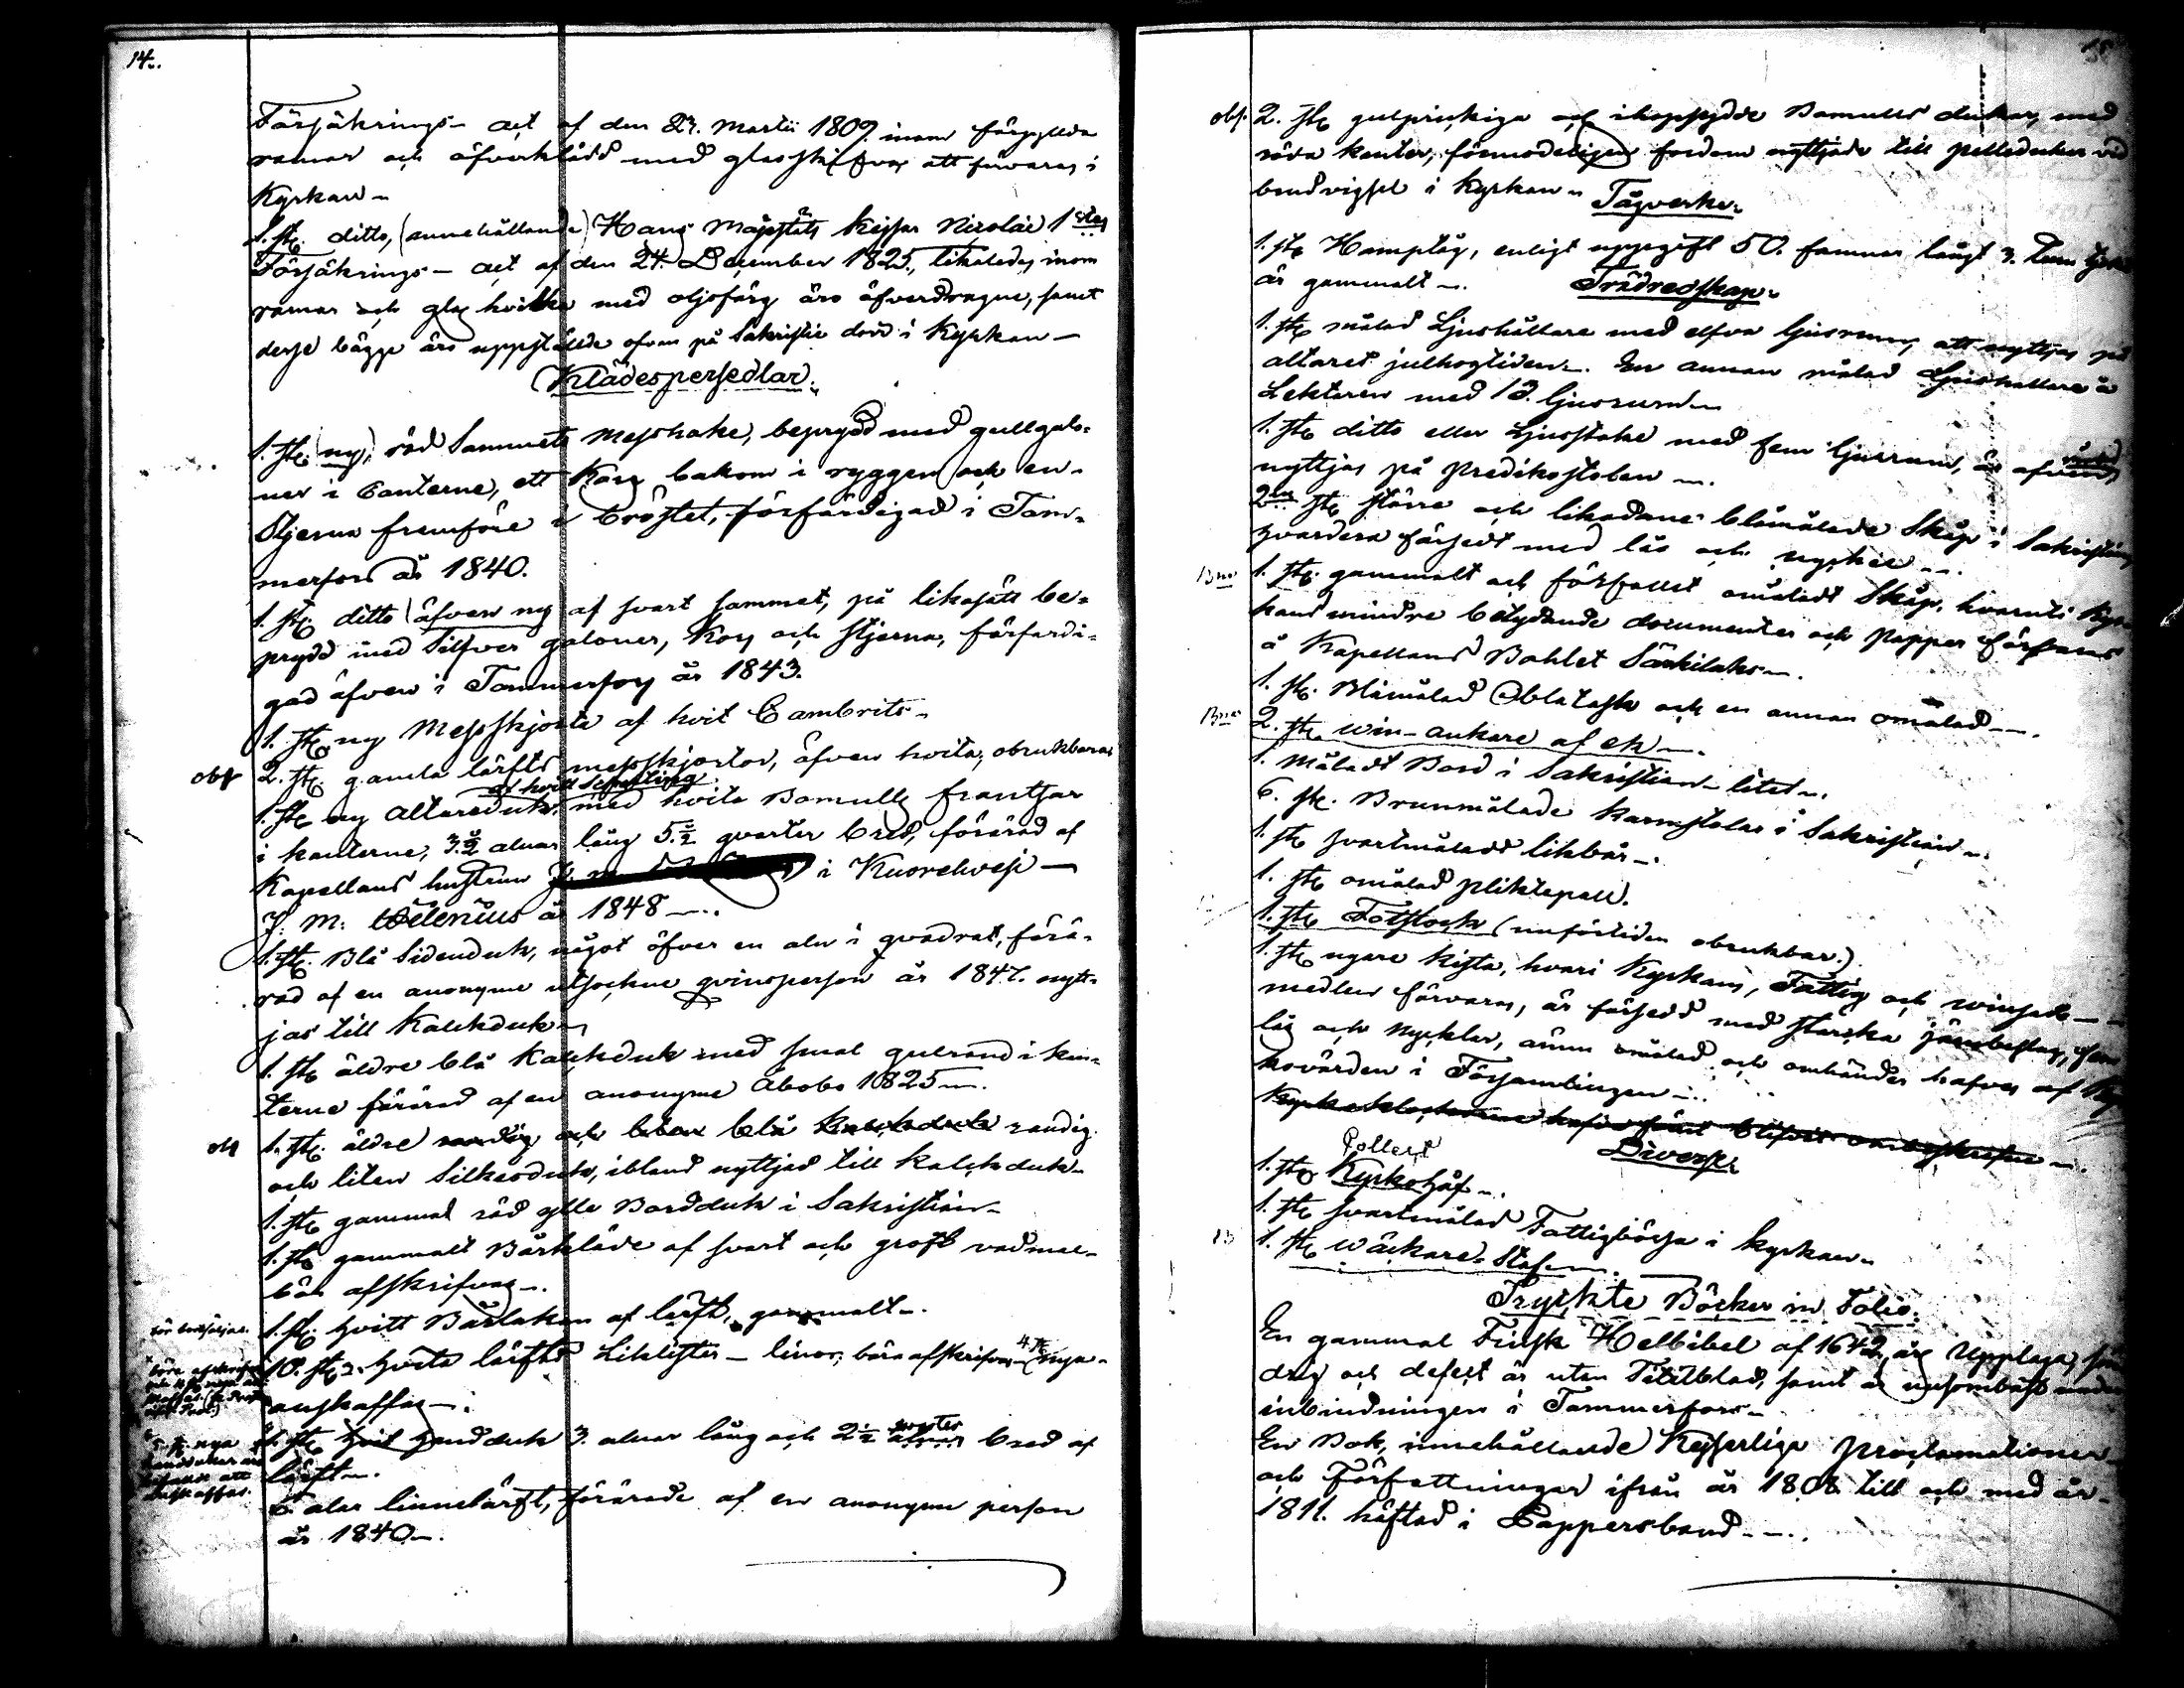 14.
Försäkrings- act af den 23. Martii 1809. inom förgyllda
ramar och öfverklädd med glasskifvas att förvaras i
Kyrkan-
1. st. ditto, (innehållande) Hans Majestäts Kejsar Nicolai 1stes
Försäkrings- act af den 24. December 1825., likaledes inom
ramar och glas hvilka med oljefärg äro öfverdragne, samt
desse bägge äro uppstälde ofvan på Sakristie dörr i Kyrkan-
Klädespersedlar.
1. st. (ny), röd Sammets Messhake, beprydd med gullgalo-
ner i Canterne, ett Kors bakom i ryggen och en
Stjerna framföre i bröstet, förfärdigad i Tam-
merfors år 1840.
1. st. ditto (äfven ny af svart sammet, på likasätt be-
prydd med Silfver galoner, Kors och Stjerna, förfärdi-
gad äfven i Tammerfors år 1843.
1. st. ny Messskjorta af hvit Cambrits-
obs 2. st. gamla lärfts messskjortor, äfven hvita, obrukbara
af hvitt
1. st. ny Altareduk, med hvita Bomulls frantsar
i kanterne, 3.½ alnar lång 5.½ qvarter bred, förärad af
Kapellans hustrun i Kuorehvesi-
J: M: Helenius år 1848-.
1. st. Blå Sidenduk, något öfver en aln i qvadrat, förä-
rad af en anonyme utsockne qvinsperson år 1847. nytt-
jas till Kalckduk-
1. st. äldre blå Kalckduk med smal gulrand i kan-
terne förärad af en anonyme Åbobo 1825-.
obs 1. st. äldre randig och liten blå Kalckduk randig
och liten Silkesduk, ibland nyttjad till Kalckduk-
1. st. gammal röd ylle Bordduk i Sakristian-
1. st. gammalt Bårkläde af svart och groft vadmal-
bör afskrifvas-.
1. st. hvitt Bårlakan af lärft, gammalt-.
10. st. hvita lärfts Liklister- linor, böra afskrifvas- 4 st. nya-
anskaffas-.
1. st. hvit handduk 3. alnar lång och 2½ qvarter bred af
lärft-.
6. alnr linnelärft, förärade af en anonyme person
år 1840-.
15
obs. 2. st. gulprickiga och ihopsydde Bomulls dukar, med
röda kanter, förmodeligen fordom nyttjade till pelledukar vid
brudvigsel i Kyrkan- Tågverke-
1. st. Hamptåg, enligt uppgift 50. famnar långt 3. tum
är gammalt-. Trädredskap-
1. st. målad Ljushållare med elfva ljusrum, att nyttjas på
altaret julhögtiden-. En annan målad Ljushållare å
Lektaren med 13. ljusrum-
1. st. ditto eller Ljusstake med fem ljusrum, är
nyttjas på Predikostolen-.
2ne st. större och likadane blåmålade Skåp i Sakristian,
hvardera försedt med lås och nyckel-.
1. st. gammalt och förfallet omåladt Skåp, hvaruti Kyr-
kans mindre betydande documenter och papper förvaras
å Kapellans Bohlet Särkilaks-.
1. st. Blåmålad Oblatask och en annan omålad-.
2. st. win-ankare af ek-.
1. Måladt Bord i Sakristian- litet-.
6. st. Brunmålade karmstolar i Sakristian-.
1. st. svartmåladt likbår-.
1. st. omålad pliktepall.
1. st. Fotstock (nuförtiden obrukbar.)
1. st. nyare Kista, hvari Kyrkans, Fattig och winsads-
medlen förvaras, är försedd med starka jernbeslag,
lås och nycklar, ännu omålad och omhänder hafves af
kovärden i Församlingen-.
Diverse-
Collect
1. st. Kyrkohåf-.
1. st. svartmålad Fattigbössa i kyrkan-
1. st. wäckare Staf-.
Tryckte Böcker in Folio.
En gammal Finsk Helbibel af 1642, års Upplaga,
och defect är utan Titelblad, samt är
inbindningen i Tammerfors-
En Bok, innehållande Kejserliga Proclamationer
och Författningar ifrån år 1808. till och med år-
1811. häftad i Pappersband-.